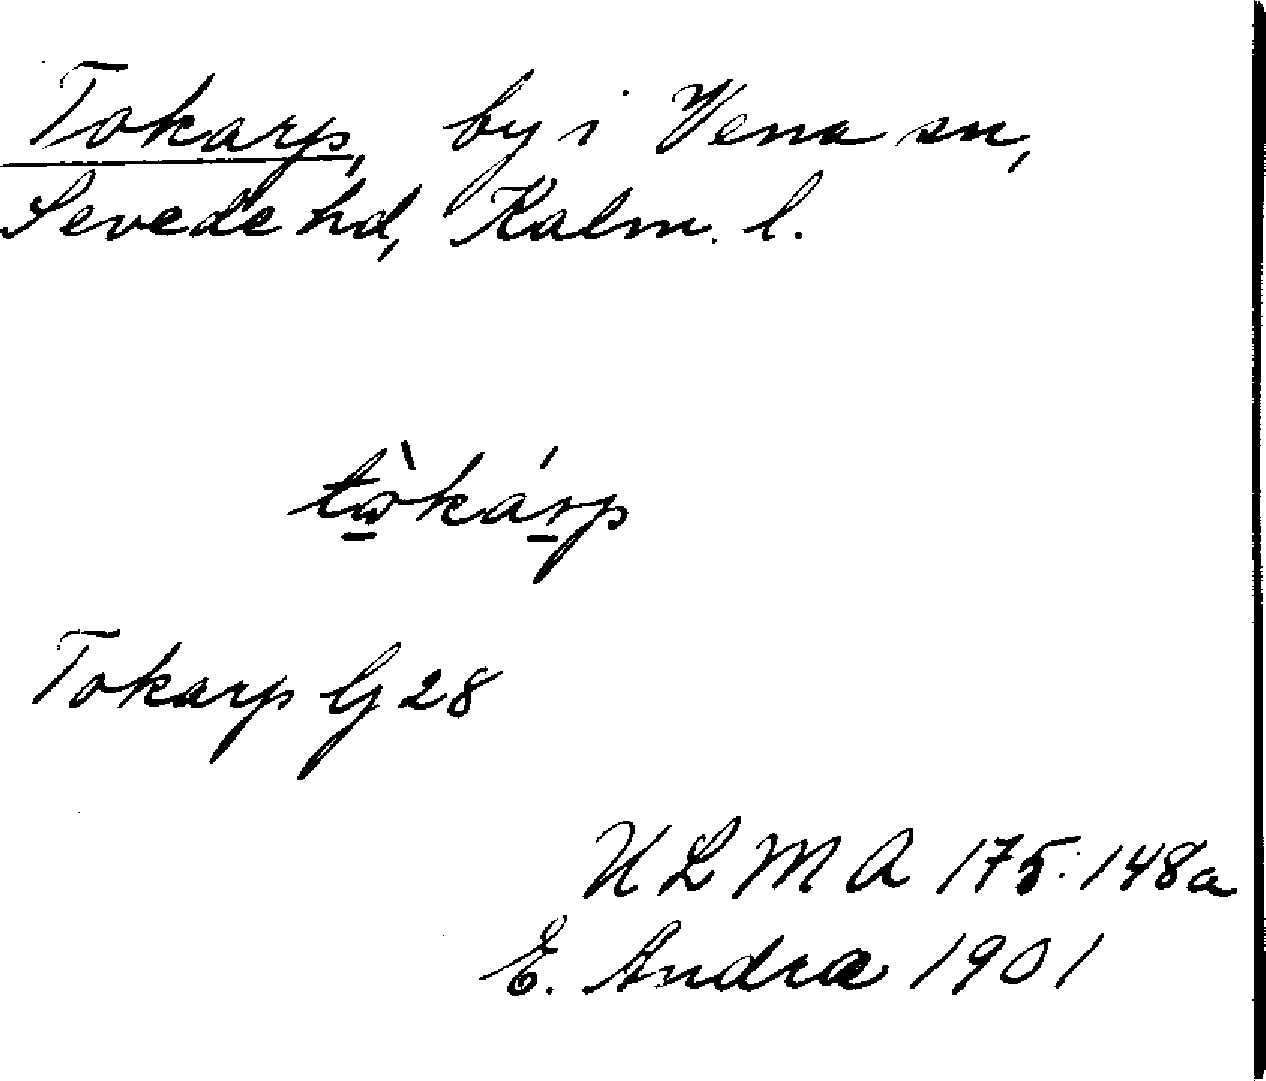 Tokarp, by i Vena sn,
Sevede hd, Kalm. l.
tὼ̠kár̠p
Tokarp Gj 28
ULMA 175:148a
E. Andræ 1901